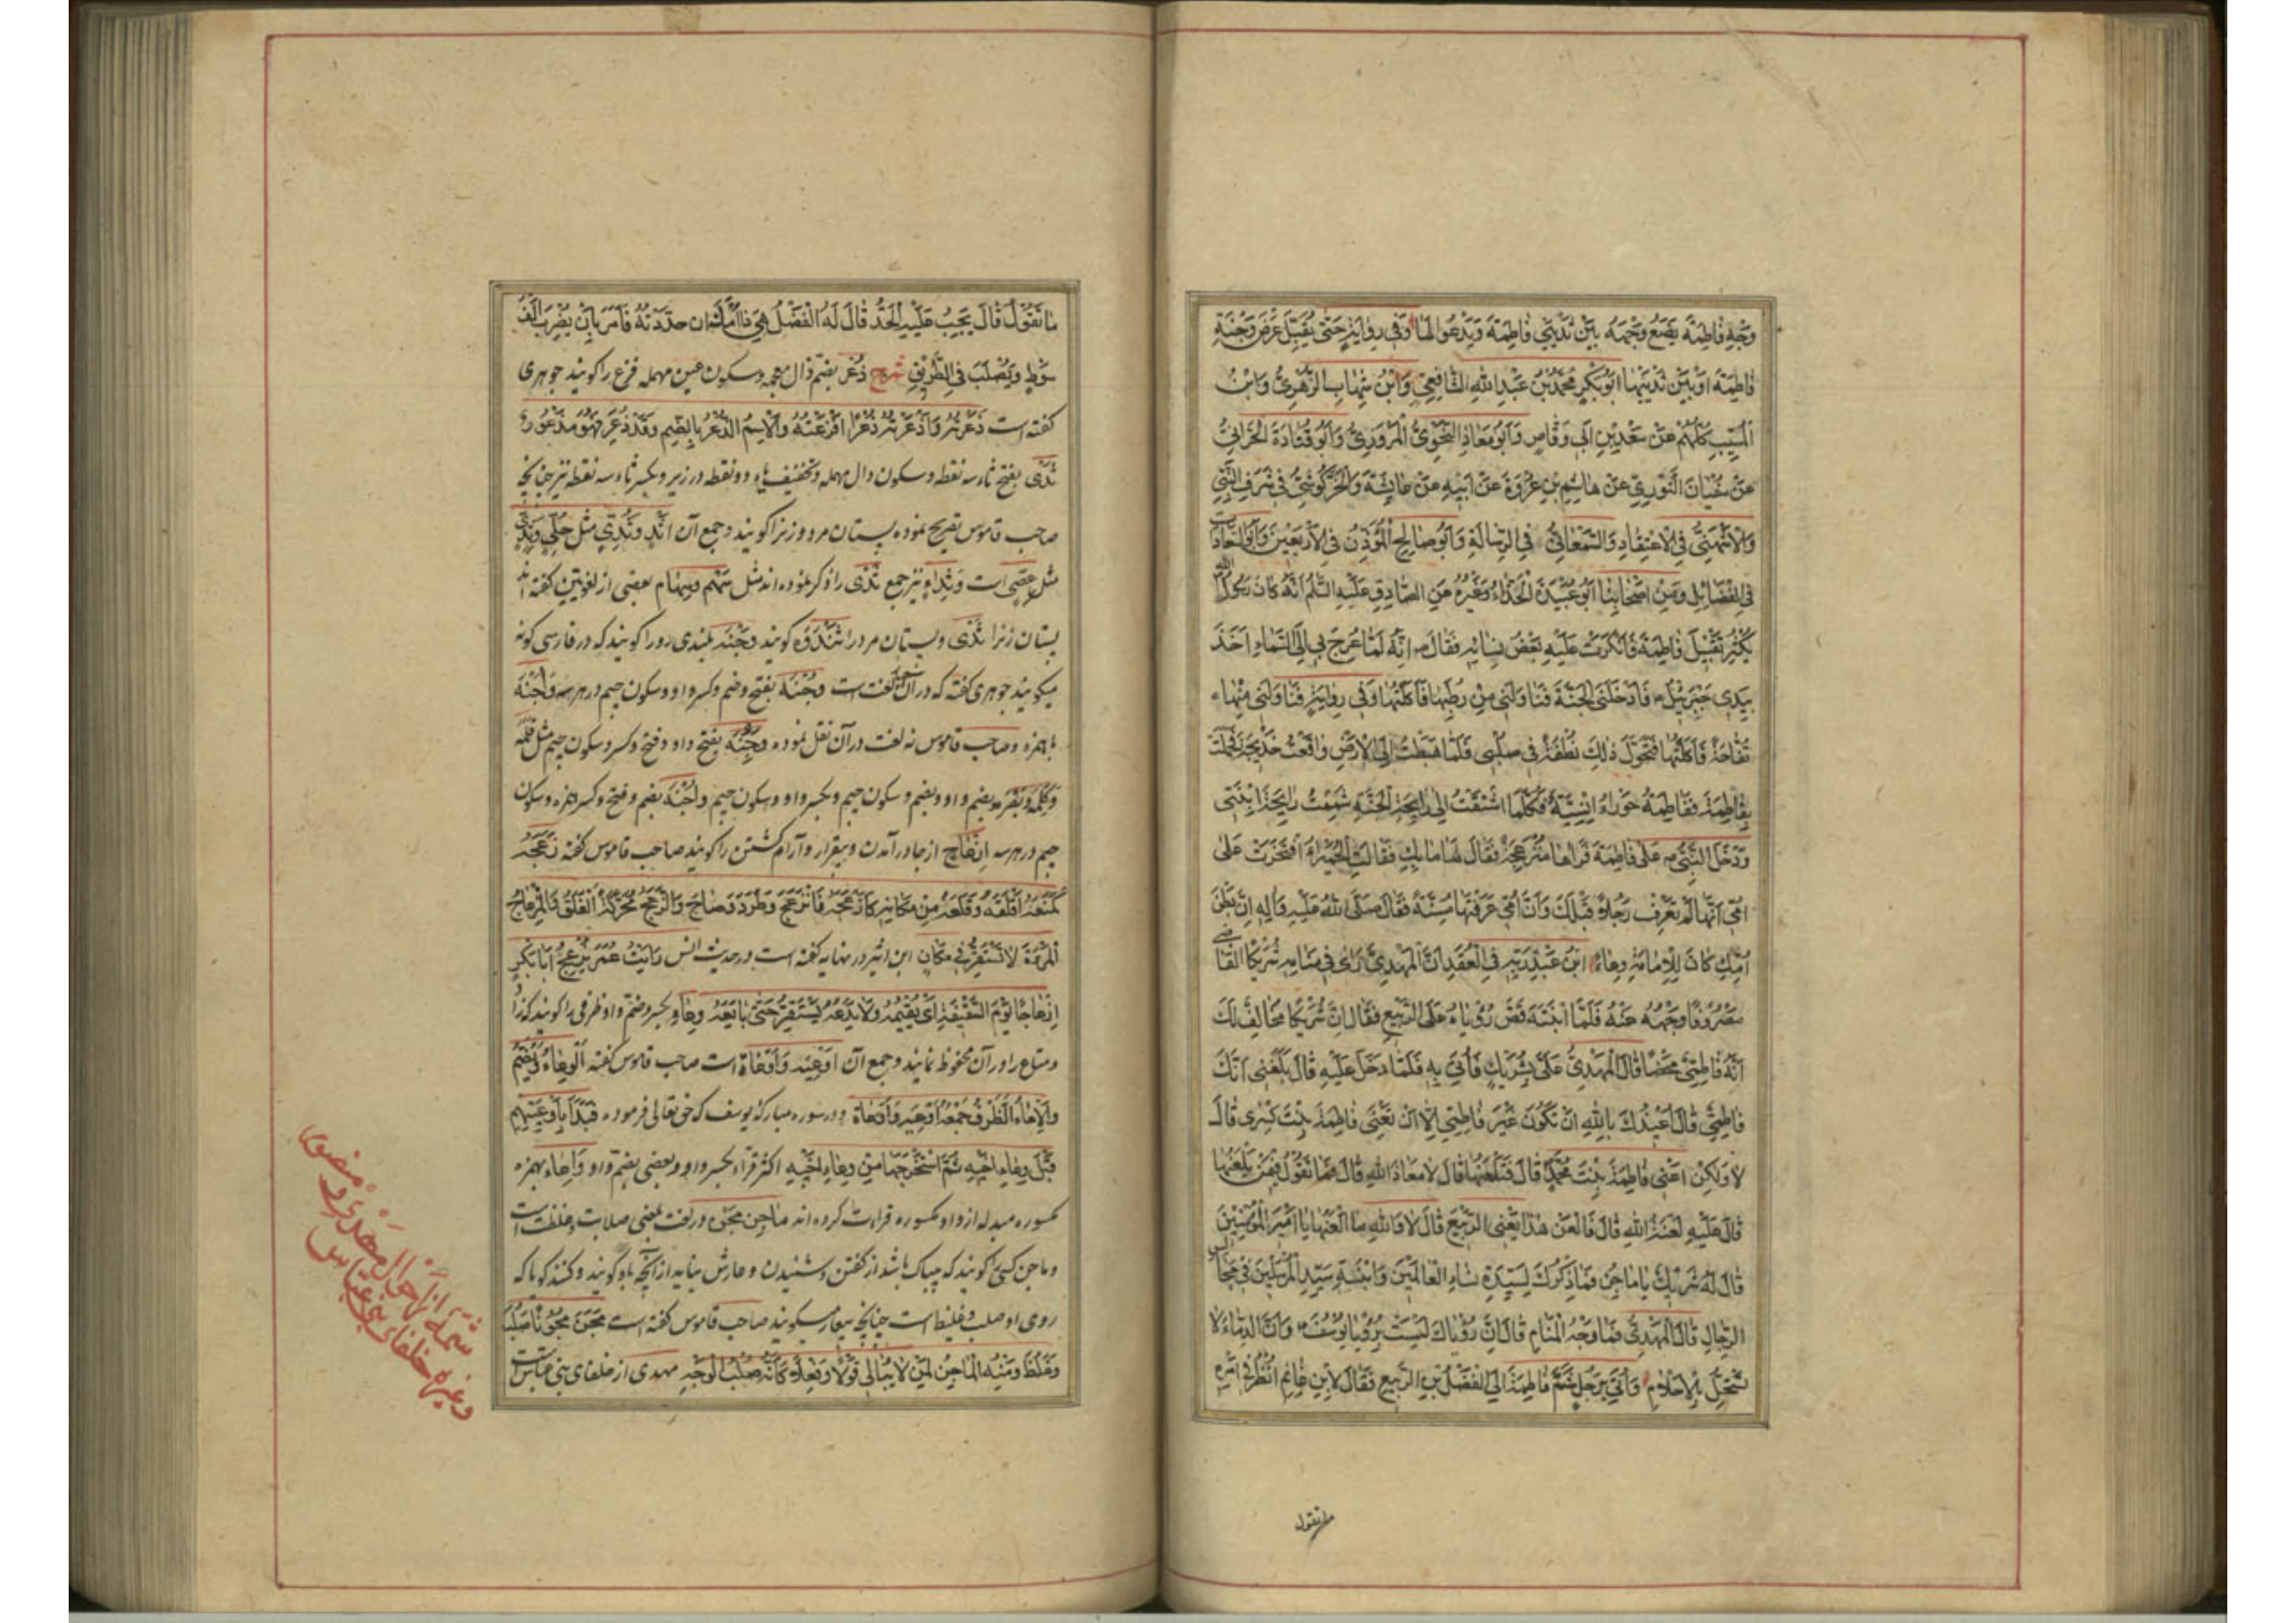 وَجْهِ فَاطِمَةَ يَضَعُ وَجْهَهُ بَيْنَ ثَدْيَيْ فَاطِمَةَ وَيَدْعُو لَهَا وَفِي رِوَايَةٍ حَتّٰى يُقَبِّلَ عَرْضَ وَجْنَةِ
فَاطِمَةَ اَوْ بَيْنَ ثَدْيَيْهَا اَبُو بَكْرٍ مُحَمَّدُ بْنُ عَبْدِ اللّٰهِ الشَّافِعِيُّ وَابْنُ شِهَابٍ الزُّهْرِيُّ وَابْنُ
الْمُسَيِّبِ كُلُّهُمْ عَنْ سَعْدِ بْنِ اَبِي وَقَّاصٍ وَاَبُو مَعَاذٍ النَّحْوِيُّ الْمَرْوَزِيُّ وَاَبُو قَتَادَةَ الْحَرَّانِيُّ
عَنْ سُفْيَانَ الثَّوْرِيِّ عَنْ هَاشِمِ بْنِ عُرْوَةَ عَنْ اَبِيهِ عَنْ عَائِشَةَ وَالْخَرْگُوشِيُّ فِي شَرَفِ النَّبِيِّ
وَالْاُشْنُهِيُّ فِي الْاِعْتِقَادِ وَالسَّمْعَانِيُّ فِي الرِّسَالَةِ وَاَبُو صَالِحٍ الْمُؤَذِّنُ فِي الْاَرْبَعِينَ وَاَبُو السَّعَادَاتِ
فِي الْفَضَائِلِ وَمِنْ اَصْحَابِنَا اَبُو عُبَيْدَةَ الْحَذَّاءُ وَغَيْرُهُ عَنِ الصَّادِقِ عَلَيْهِ السَّلَمُ اَنَّهُ كَانَ رَسُولُ اللّٰهِ
يُكْثِرُ تَقْبِيلَ فَاطِمَةَ فَاَنْكَرَتْ عَلَيْهِ بَعْضُ نِسَائِهِ فَقَالَ ص اِنَّهُ لَمَّا عُرِجَ بِي اِلَى السَّمَاءِ اَخَذَ
بِيَدِي جَبْرَئِيلُ فَاَدْخَلَنِي الْجَنَّةَ فَنَاوَلَنِي مِنْ رُطَبِهَا فَاَكَلْتُهَا وَفِي رِوَايَةٍ فَنَاوَلَنِي مِنْهَا
تُفَّاحَةً فَاَكَلْتُهَا فَتَحَوَّلَ ذٰلِكَ نُطْفَةً فِي صُلْبِي فَلَمَّا هَبَطْتُ اِلَى الْاَرْضِ وَاقَعْتُ خَدِيجَةَ فَحَمَلَتْ
بِفَاطِمَةَ فَفَاطِمَةُ حَوْرَاءُ اِنْسِيَّةٌ فَكُلَّمَا اشْتَقْتُ اِلَى رَايِحَةِ الْجَنَّةِ شَمِمْتُ رَايِحَةَ ابْنَتِي
وَدَخَلَ النَّبِيُّ ص عَلَى فَاطِمَةَ فَرَاٰهَا مُنْزَعِجَةً فَقَالَ لَهَا مَا بِكِ فَقَالَتِ الْحُمَيْرَاءُ افْتَخَرَتْ عَلَى
اُمِّي اَنَّهَا لَمْ تَعْرِفْ رَجُلًا قَبْلَكَ وَاَنَّ اُمِّي عَرَفَتْهَا مُسِنَّةً فَقَالَ صَلَّى اللّٰهُ عَلَيْهِ وَاٰلِهِ اِنَّ بَطْنَ
اُمِّكِ كَانَ لِلْاِمَامَةِ وِعَاءً ابْنُ عَبْدِ رَبِّهِ فِي الْعِقْدِ اَنَّ الْمَهْدِيَّ رَاٰى فِي مَنَامِهِ شَرِيكًا الْقَاضِي
مَصْرُوفًا وَجْهُهُ عَنْهُ فَلَمَّا انْتَبَهَ قَصَّ رُؤْيَاهُ عَلَى الرَّبِيعِ فَقَالَ اِنَّ شَرِيكًا مُخَالِفٌ لَكَ
اَنَّهُ فَاطِمِيٌّ مَحْضًا قَالَ الْمَهْدِيُّ عَلَيَّ بِشَرِيكٍ فَاُتِيَ بِهِ فَلَمَّا دَخَلَ عَلَيْهِ قَالَ بَلَغَنِي اَنَّكَ
فَاطِمِيٌّ قَالَ اُعِيذُكَ بِاللّٰهِ اَنْ تَكُونَ غَيْرَ فَاطِمِيٍّ اِلَّا اَنْ تَعْنِيَ فَاطِمَةَ بِنْتَ كِسْرٰى قَالَ
لَا وَلٰكِنْ اَعْنِي فَاطِمَةَ بِنْتَ مُحَمَّدٍ قَالَ فَتَلْعَنُهَا قَالَ لَا مَعَاذَ اللّٰهِ قَالَ فَمَا تَقُولُ فِيمَنْ يَلْعَنُهَا
قَالَ عَلَيْهِ لَعْنَةُ اللّٰهِ قَالَ فَالْعَنْ هٰذَا يَعْنِي الرَّبِيعَ قَالَ لَا وَاللّٰهِ مَا اَلْعَنُهَا يَا اَمِيرَ الْمُؤْمِنِينَ
قَالَ لَهُ شَرِيكٌ يَا مَاجِنُ فَمَا ذِكْرُكَ لِسَيِّدَةِ نِسَاءِ الْعَالَمِينَ وَابْنَةِ سَيِّدِ الْمُرْسَلِينَ فِي مَجَالِسِ
الرِّجَالِ قَالَ الْمَهْدِيُّ فَمَا وَجْهُ الْمَنَامِ قَالَ اِنَّ رُؤْيَاكَ لَيْسَتْ بِرُؤْيَا يُوسُفَ وَاَنَّ الدِّمَاءَ لَا
تُسْتَحَلُّ بِالْاَحْلَامِ وَاُتِيَ بِرَجُلٍ شَتَمَ فَاطِمَةَ اِلَى الْفَضْلِ بْنِ الرَّبِيعِ فَقَالَ لِابْنِ غَانِمٍ اُنْظُرْ فِي اَمْرِهِ
ما تقول
مَا تَقُولُ قَالَ يَجِبُ عَلَيْهِ الْحَدُّ قَالَ لَهُ الْفَضْلُ هِيَ ذَا اُمُّكَ اِنْ حَدَدْتَهُ فَاَمَرَ بِاَنْ يُضْرَبَ اَلْفَ
سَوْطٍ وَيُصْلَبَ فِي الطَّرِيقِ شرح ذُعْر بضم ذال معجمه وسكون عين مهمله فزع را كويند جوهرى
كفته است ذَعَرْتُهُ وَاَذْعَرْتُهُ ذُعْرًا اَفْزَعْتُهُ وَالْاِسْمُ الذُّعْرُ بِالضَّمِّ وَقَدْ ذُعِرَ فَهُوَ مَذْعُورٌ
ثَدْى بفتح ثاء سه نقطه وسكون دال مهمله وتخفيف ياء دو نقطه در زير وبكسر ثاء سه نقطه نيز چنانچه
صاحب قاموس تصريح نموده پستان مرد وزن را كويند وجمع آن اَثْدٍ وَثُدِيّ مثل حُلِيّ
مثل عِصِيّ است وَثِدَاء نيز جمع ثَدْى را ذكر نموده اند مثل سَهْم وسِهَام بعضى از لغويين كفته اند
پستان زن را ثَدْى وپستان مرد را ثَنْدُوَه كويند وَجْنَه بلندى رو را كويند كه در فارسى كونه
ميكويند جوهرى كفته كه در آن لغت است وَجْنَة بفتح وضم وكسر واو وسكون جيم در هر سه وَاُجْنَة
با همزه وصاحب قاموس نه لغت در آن نقل نموده وَجْنَة بفتح واو وفتح وكسر وسكون جيم مثل
بضم واو وبضم وسكون جيم وبكسر واو وسكون جيم واُجْنَة بضم وفتح وكسر همزه وسكون
جيم در هر سه اِنْزِعَاج از جا در آمدن وبيقرار وآرام كشتن را كويند صاحب قاموس كفته زَعَجَهُ
كَمَنَعَهُ اَقْلَقَهُ وَقَلَعَهُ مِنْ مَكَانِهِ كَاَزْعَجَهُ فَانْزَعَجَ وَطَرَدَ وَصَاحَ وَالزَّعَجُ مُحَرَّكَةً الْقَلَقُ وَالْمِزْعَاجُ
الْمَرْءَةُ لَا تَسْتَقِرُّ فِي مَكَانٍ ابن اثير در نهايه كفته است در حديث انس رَاَيْتُ عُمَرَ يُزْعِجُ اَبَا بَكْرٍ
اِزْعَاجًا يَوْمَ السَّقِيفَةِ اَىْ يُقِيمُهُ وَلَا يَدَعُهُ يَسْتَقِرُّ حَتّٰى بَايَعَهُ وِعَاء بكسر وضم واو ظرفى را كويند كه زاد
ومتاع را در آن محفوظ نمايند وجمع آن اَوْعِيَه وَاَوْعَاة است صاحب قاموس كفته اَلْوِعَاءُ وَيُضَمُّ
وَالْاِعَاءُ الظَّرْفُ جَمْعُهُ اَوْعِيَة وَاَوْعَاة ودر سوره مباركه يوسف كه حق تعالى فرموده فَبَدَاَ بِاَوْعِيَتِهِمْ
قَبْلَ وِعَاءِ اَخِيهِ ثُمَّ اسْتَخْرَجَهَا مِنْ وِعَاءِ اَخِيهِ اكثر قراء بكسر واو وبعضى بضم واو وَاِعَاء بهمزه
مكسوره مبدله از واو مكسوره قراءت كرده اند مَاجِن مجون در لغت بمعنى صلابت وغلظت است
وماجن كسى كويند كه بيباك باشد از كفتن وشنيدن وعارش نيايد از آنچه باو كويند وكنند كويا كه
روى او صلب وغليظ است چنانچه بيعار ميكويند صاحب قاموس كفته است مَجَنَ مُجُونًا صَلُبَ
وَغَلُظَ وَمِنْهُ الْمَاجِنُ لِمَنْ لَا يُبَالِي قَوْلًا وَفِعْلًا كَاَنَّهُ صُلْبُ الْوَجْهِ مهدى از خلفاى بنى عباس است
شمّه از احوال مهدى و منصور
وغيره خلفاى بنى عباس